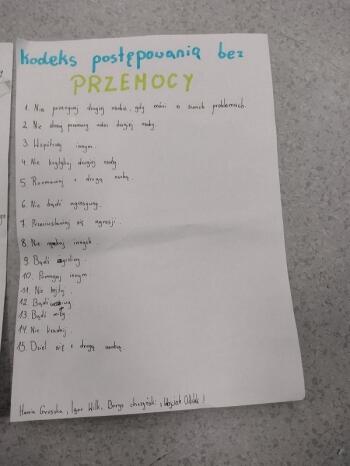 Kodeks postępowania bez
PRZEMOCY
1. Nie przerywaj drugiej osobie, gdy mówi o swoich problemach.
2. Nie stosuj przemocy wobec drugiej osoby.
3. Współczuj innym.
4. Nie krytykuj drugiej osoby.
5. Rozmawiaj z drugą osobą.
6. Nie bądź agresywny.
7. Przeciwstawiaj się agresji.
8. Nie innych.
9. Bądź
10. Pomagaj innym.
11. Nie
12. Bądź
13. Bądź miły.
14. Nie kradnij.
15. Dziel się z drugą osobą.
Hania Gruszka, Igor Wilk,